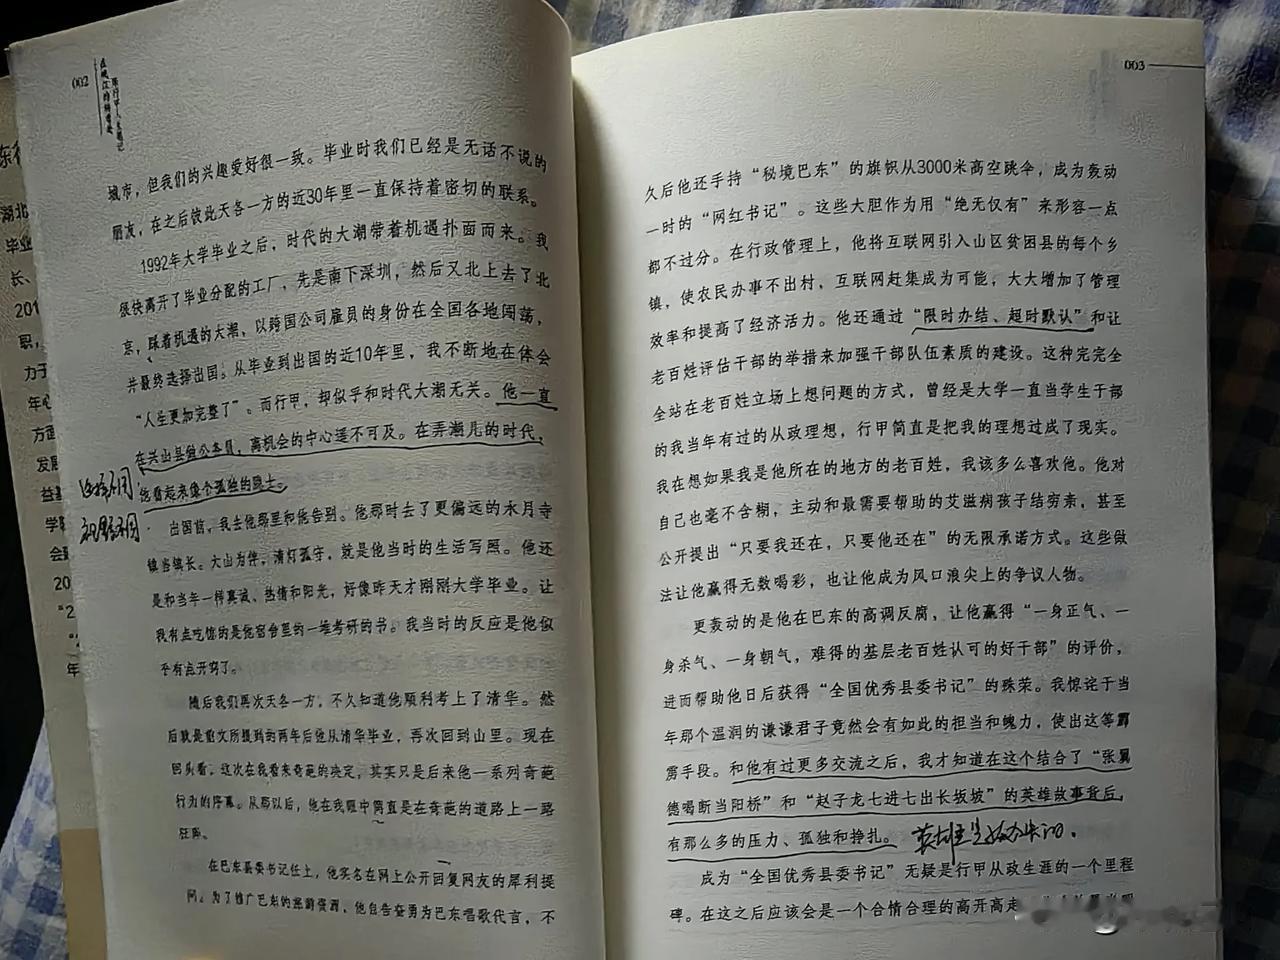 002
在峡江的转弯处
陈行甲人生笔记
城市，但我们的兴趣爱好很一致。毕业时我们已经是无话不说的
朋友，在之后彼此天各一方的近30年里一直保持着密切的联系。
1992年大学毕业之后，时代的大潮带着机遇扑面而来。我
很快离开了毕业分配的工厂，先是南下深圳，然后又北上去了北
京，踩着机遇的大潮，以跨国公司雇员的身份在全国各地闯荡，
并最终选择出国。从毕业到出国的近10年里，我不断地在体会
“人生更加完整了”。而行甲，却似乎和时代大潮无关。他一直
在兴山县做公务员，离机会的中心遥不可及。在弄潮儿的时代，
他看起来像个孤独的隐士。
选择不同
视野不同
出国前，我去他那里和他告别。他那时去了更偏远的水月寺
镇当镇长。大山为伴，清灯孤守，就是他当时的生活写照。他还
是和当年一样真诚、热情和阳光，好像昨天才刚刚大学毕业。让
我有点吃惊的是他宿舍里的一堆考研的书。我当时的反应是他似
乎有点开窍了。
随后我们再次天各一方，不久知道他顺利考上了清华。然
后就是前文所提到的两年后他从清华毕业，再次回到山里。现在
回头看，这次在我看来奇葩的决定，其实只是后来他一系列奇葩
行为的序幕。从那以后，他在我眼中简直是在奇葩的道路上一路
狂奔。
在巴东县委书记任上，他实名在网上公开回复网友的犀利提
问。为了推广巴东的旅游资源，他自告奋勇为巴东唱歌代言，不
003
久后他还手持“秘境巴东”的旗帜从3000米高空跳伞，成为轰动
一时的“网红书记”。这些大胆作为用“绝无仅有”来形容一点
都不过分。在行政管理上，他将互联网引入山区贫困县的每个乡
镇，使农民办事不出村，互联网赶集成为可能，大大增加了管理
效率和提高了经济活力。他还通过“限时办结、超时默认”和让
老百姓评估干部的举措来加强干部队伍素质的建设。这种完完全
全站在老百姓立场上想问题的方式，曾经是大学一直当学生干部
的我当年有过的从政理想，行甲简直是把我的理想过成了现实。
我在想如果我是他所在的地方的老百姓，我该多么喜欢他。他对
自己也毫不含糊，主动和最需要帮助的艾滋病孩子结穷亲，甚至
公开提出“只要我还在，只要他还在”的无限承诺方式。这些做
法让他赢得无数喝彩，也让他成为风口浪尖上的争议人物。
更轰动的是他在巴东的高调反腐，让他赢得“一身正气、一
身杀气、一身朝气，难得的基层老百姓认可的好干部”的评价，
进而帮助他日后获得“全国优秀县委书记”的殊荣。我惊诧于当
年那个温润的谦谦君子竟然会有如此的担当和魄力，使出这等霹
雳手段。和他有过更多交流之后，我才知道在这个结合了“张翼
德喝断当阳桥”和“赵子龙七进七出长坂坡”的英雄故事背后，
有那么多的压力、孤独和挣扎。
英雄
成为“全国优秀县委书记”无疑是行甲从政生涯的一个里程
碑。在这之后应该会是一个合情合理的高开高走